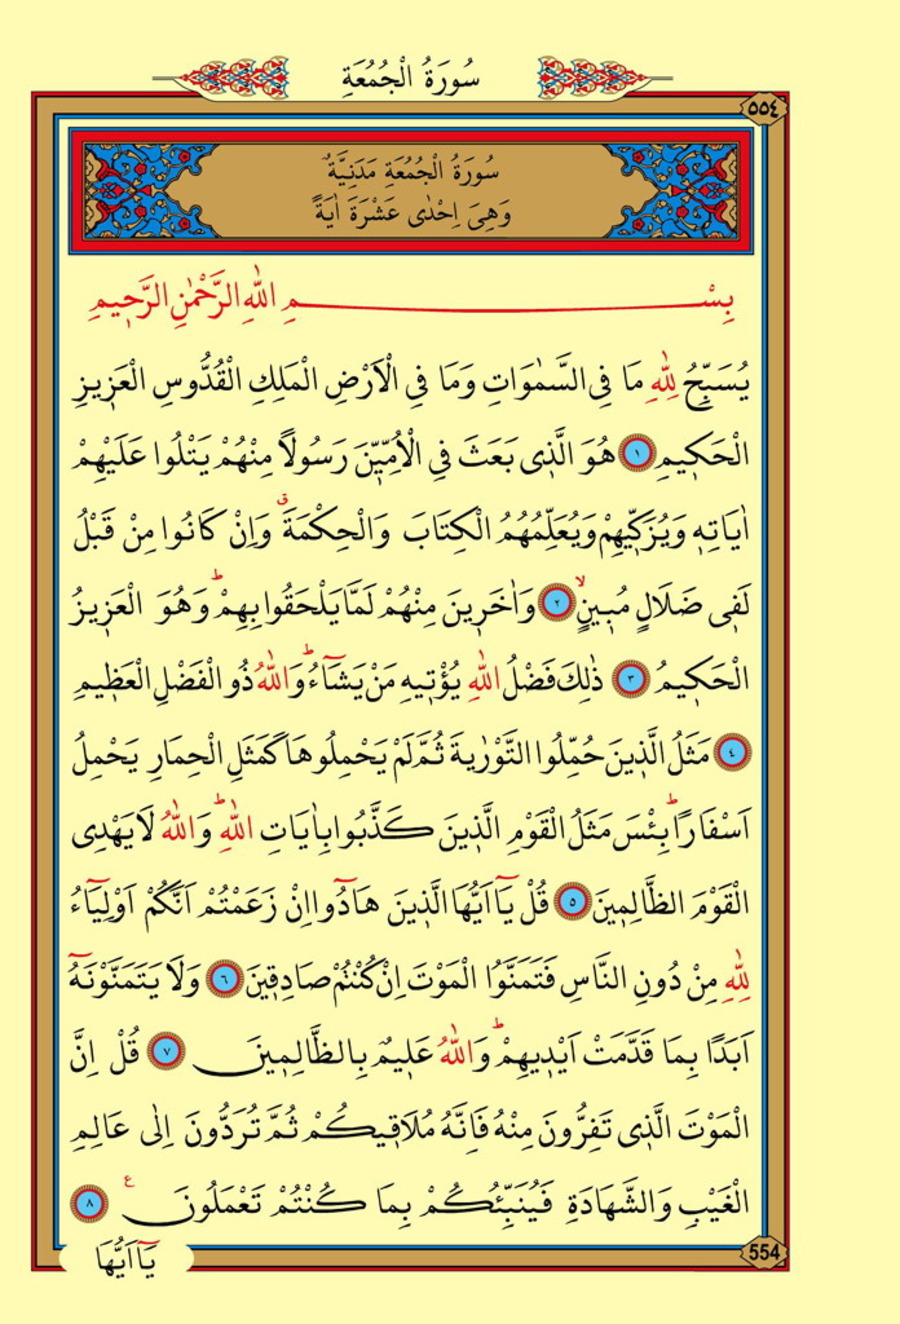 سُورَةُ الْجُمُعَةِ
٥٥٤
سُورَةُ الْجُمُعَةِ مَدَنِيَّةٌ
وَهِيَ اِحْدٰى عَشْرَةَ اٰيَةً
بِسْمِ اللّٰهِ الرَّحْمٰنِ الرَّحٖيمِ
يُسَبِّحُ لِلّٰهِ مَا فِى السَّمٰوَاتِ وَمَا فِى الْاَرْضِ الْمَلِكِ الْقُدُّوسِ الْعَزٖيزِ
الْحَكٖيمِ ١ هُوَ الَّذٖى بَعَثَ فِى الْاُمِّيّٖنَ رَسُولًا مِنْهُمْ يَتْلُوا عَلَيْهِمْ
اٰيَاتِهٖ وَيُزَكّٖيهِمْ وَيُعَلِّمُهُمُ الْكِتَابَ وَالْحِكْمَةَ ق وَاِنْ كَانُوا مِنْ قَبْلُ
لَفٖى ضَلَالٍ مُبٖينٍ لا ٢ وَاٰخَرٖينَ مِنْهُمْ لَمَّا يَلْحَقُوا بِهِمْ ط وَهُوَ الْعَزٖيزُ
الْحَكٖيمُ ٣ ذٰلِكَ فَضْلُ اللّٰهِ يُؤْتٖيهِ مَنْ يَشَٓاءُ ط وَاللّٰهُ ذُو الْفَضْلِ الْعَظٖيمِ
٤ مَثَلُ الَّذٖينَ حُمِّلُوا التَّوْرٰيةَ ثُمَّ لَمْ يَحْمِلُوهَا كَمَثَلِ الْحِمَارِ يَحْمِلُ
اَسْفَارًا ط بِئْسَ مَثَلُ الْقَوْمِ الَّذٖينَ كَذَّبُوا بِاٰيَاتِ اللّٰهِ ط وَاللّٰهُ لَا يَهْدِى
الْقَوْمَ الظَّالِمٖينَ ٥ قُلْ يَٓا اَيُّهَا الَّذٖينَ هَادُٓوا اِنْ زَعَمْتُمْ اَنَّكُمْ اَوْلِيَٓاءُ
لِلّٰهِ مِنْ دُونِ النَّاسِ فَتَمَنَّوُا الْمَوْتَ اِنْ كُنْتُمْ صَادِقٖينَ ٦ وَلَا يَتَمَنَّوْنَهُٓ
اَبَدًا بِمَا قَدَّمَتْ اَيْدٖيهِمْ ط وَاللّٰهُ عَلٖيمٌ بِالظَّالِمٖينَ ٧ قُلْ اِنَّ
الْمَوْتَ الَّذٖى تَفِرُّونَ مِنْهُ فَاِنَّهُ مُلَاقٖيكُمْ ثُمَّ تُرَدُّونَ اِلٰى عَالِمِ
الْغَيْبِ وَالشَّهَادَةِ فَيُنَبِّئُكُمْ بِمَا كُنْتُمْ تَعْمَلُونَ ع ٨
554
يَٓا اَيُّهَا